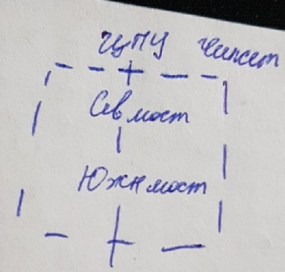 ЦПУ Чипсет
Сев мост
Южн мост